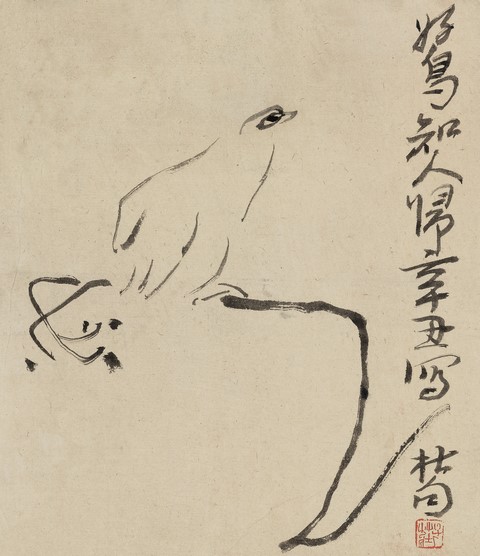 好鳥知人歸辛丑寫